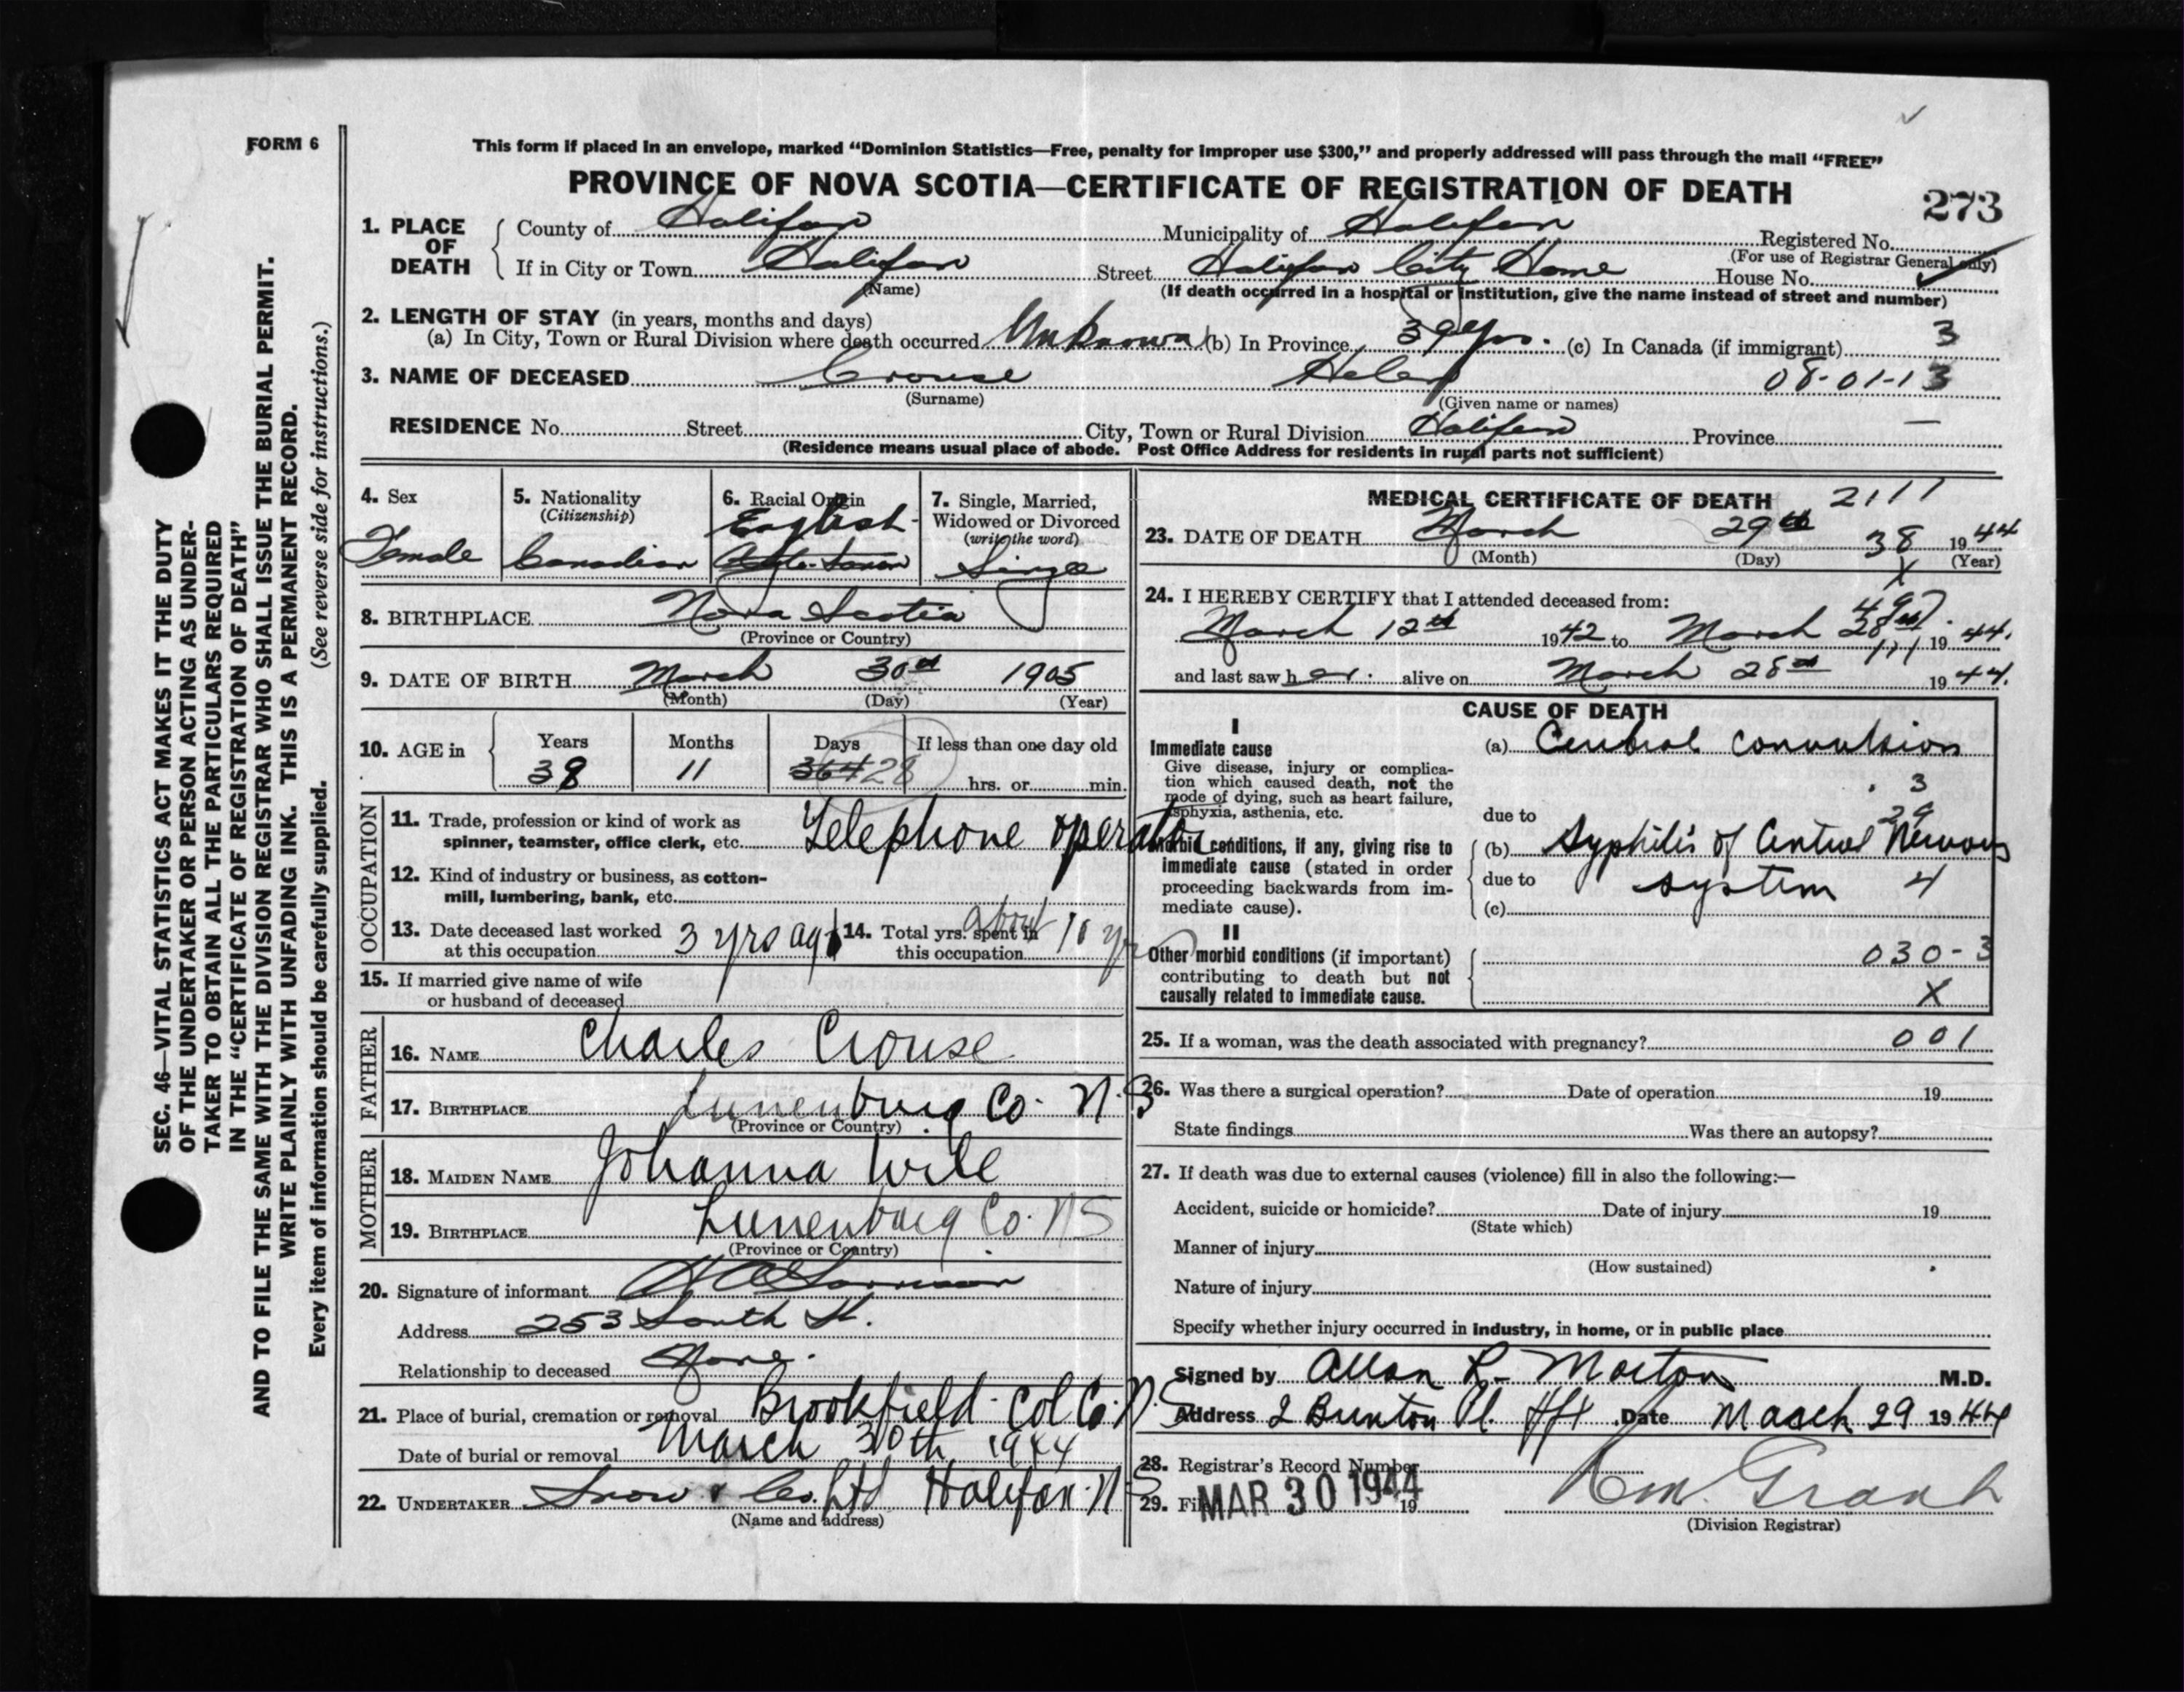 FORM 6
This form if placed in an envelope, marked “Dominion Statistics—Free, penalty for improper use $300,” and properly addressed will pass through the mail “FREE”
PROVINCE OF NOVA SCOTIA—CERTIFICATE OF REGISTRATION OF DEATH
273
1. PLACE OF DEATH
County of Halifax Municipality of Halifax Registered No.
(For use of Registrar General only)
If in City or Town Halifax Street Halifax City Home House No.
(Name) (If death occurred in a hospital or institution, give the name instead of street and number)
2. LENGTH OF STAY (in years, months and days)
(a) In City, Town or Rural Division where death occurred Unknown (b) In Province 39 yrs. (c) In Canada (if immigrant) 3
3. NAME OF DECEASED Crouse Helen 08-01-13
(Surname) (Given name or names)
RESIDENCE No. Street City, Town or Rural Division Halifax Province —
(Residence means usual place of abode. Post Office Address for residents in rural parts not sufficient)
4. Sex
Female
5. Nationality
(Citizenship)
Canadian
6. Racial Origin
English
7. Single, Married, Widowed or Divorced
(write the word)
Single
8. BIRTHPLACE Nova Scotia
(Province or Country)
9. DATE OF BIRTH March 30th 1905
(Month) (Day) (Year)
10. AGE in
Years Months Days If less than one day old
38 11 364 28 hrs. or min.
OCCUPATION
11. Trade, profession or kind of work as
spinner, teamster, office clerk, etc. Telephone operator
12. Kind of industry or business, as cotton-
mill, lumbering, bank, etc.
13. Date deceased last worked
at this occupation 3 yrs ago
14. Total yrs. spent in
this occupation about 10 yrs
15. If married give name of wife
or husband of deceased
FATHER
16. NAME Charles Crouse
17. BIRTHPLACE Lunenburg Co. N.S
(Province or Country)
MOTHER
18. MAIDEN NAME Johanna Wile
19. BIRTHPLACE Lunenburg Co. NS
(Province or Country)
20. Signature of informant
Address 253 South St.
Relationship to deceased None.
21. Place of burial, cremation or removal Brookfield Col Co. N.S
Date of burial or removal March 30th 1944
22. UNDERTAKER Snow & Co. Ltd Halifax N.S
(Name and address)
MEDICAL CERTIFICATE OF DEATH 2111
23. DATE OF DEATH March 29th 38 1944
(Month) (Day) (Year)
X
24. I HEREBY CERTIFY that I attended deceased from:
March 12th 1942 to March 28th 1944.
and last saw her alive on March 28th 1944.
CAUSE OF DEATH
I
Immediate cause
Give disease, injury or complica-
tion which caused death, not the
mode of dying, such as heart failure,
asphyxia, asthenia, etc.
(a) Cerebral convulsion
3
due to
29
Morbid conditions, if any, giving rise to
immediate cause (stated in order
proceeding backwards from im-
mediate cause).
(b) Syphilis of Central Nervous
due to system 4
(c)
II
Other morbid conditions (if important)
contributing to death but not
causally related to immediate cause.
030-3
X
25. If a woman, was the death associated with pregnancy? 001
26. Was there a surgical operation? Date of operation 19
State findings Was there an autopsy?
27. If death was due to external causes (violence) fill in also the following:—
Accident, suicide or homicide? Date of injury 19
(State which)
Manner of injury
(How sustained)
Nature of injury
Specify whether injury occurred in industry, in home, or in public place
Signed by Allan R. Morton M.D.
Address 2 Brunton Pl. Hfx Date March 29 1944
28. Registrar's Record Number
29. Filed MAR 30 1944 19
(Division Registrar)
SEC. 46—VITAL STATISTICS ACT MAKES IT THE DUTY
OF THE UNDERTAKER OR PERSON ACTING AS UNDER-
TAKER TO OBTAIN ALL THE PARTICULARS REQUIRED
IN THE “CERTIFICATE OF REGISTRATION OF DEATH”
AND TO FILE THE SAME WITH THE DIVISION REGISTRAR WHO SHALL ISSUE THE BURIAL PERMIT.
WRITE PLAINLY WITH UNFADING INK. THIS IS A PERMANENT RECORD.
Every item of information should be carefully supplied. (See reverse side for instructions.)